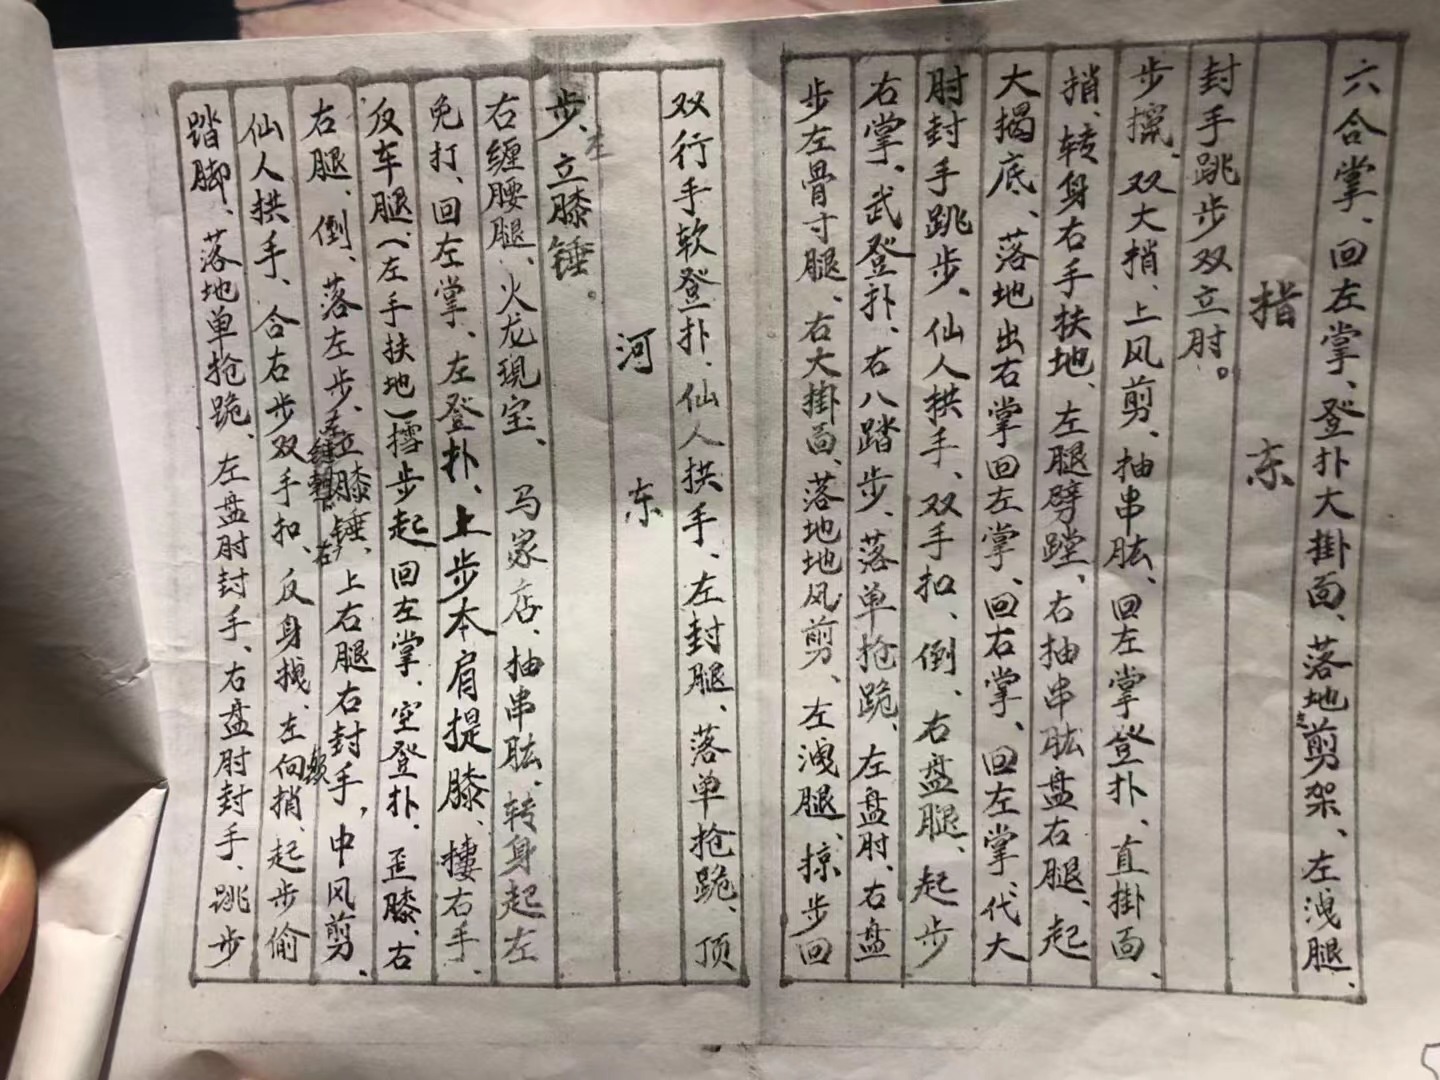 六合掌、回左掌、登扑大掛面、落地剪架、左洩腿、
封手跳步双立肘。
指 东
步擓、双大捎、上风剪、抽串肱、回左掌登扑、直掛面、
捎、转身右手扶地、左腿劈蹚、右抽串肱盘右腿、起
大揭底、落地出右掌回左掌、回右掌、回左掌、代大
肘封手跳步、仙人拱手、双手扣、倒、右盘腿、起步
右掌、武登扑、右八踏步、落单抢跪、左盘肘、右盘
步左骨寸腿、右大掛面、落地地风剪、左洩腿、掠步回
双行手软登扑、仙人拱手、左封腿、落单抢跪、顶
河 东
步、左立膝锤。
右缠腰腿、火龙現宝、马家店、抽串肱、转身起左
免打、回左掌、左登扑、上步本肩提膝、搂右手、
反车腿、（左手扶地）擂步起回左掌、空登扑、歪膝、右
右腿、倒、落左步、立膝锤、右上右腿右封手，中风剪、
仙人拱手、合右步双手扣、反身拽、左向捎、起步偷
踏脚、落地单抢跪、左盘肘封手、右盘肘封手、跳步